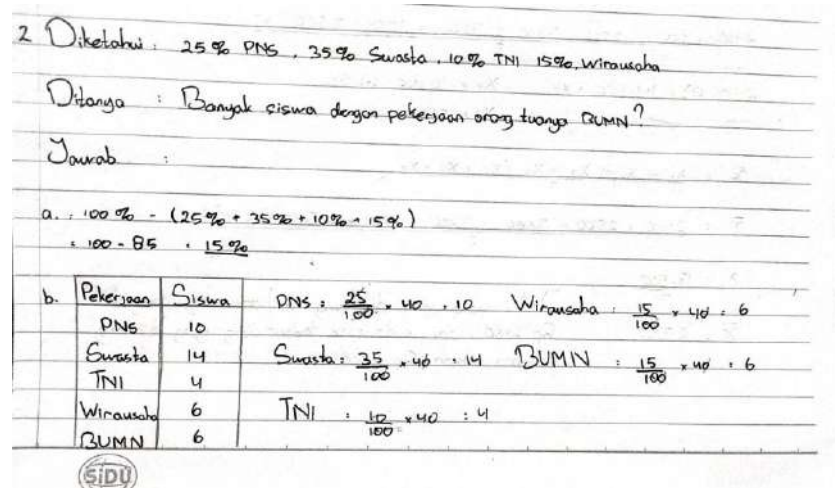 2 Diketahui : 25% PNS, 35% Swasta, 10% TNI 15%, Wirausaha
Ditanya : Banyak siswa dengan pekerjaan orang tuanya BUMN?
Jawab :
a. : 100% - (25% + 35% + 10% + 15%)
= 100 - 85 = 15%
b. Pekerjaan Siswa
PNS 10
Swasta 14
TNI 4
Wirausaha 6
BUMN 6
PNS : 25/100 × 40 = 10 Wirausaha : 15/100 × 40 = 6
Swasta : 35/100 × 40 = 14 BUMN : 15/100 × 40 = 6
TNI : 10/100 × 40 = 4
SiDU